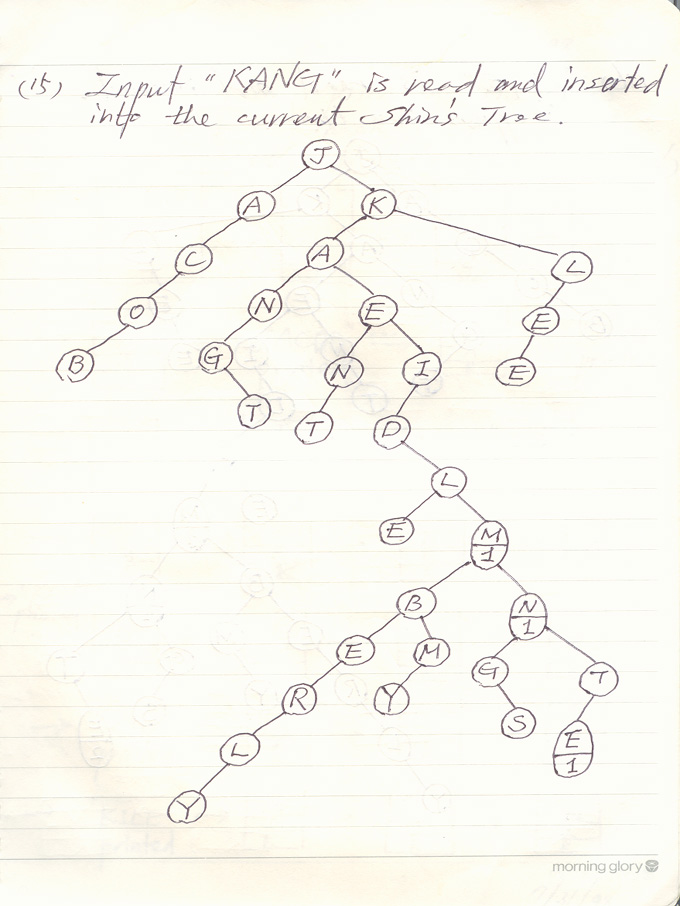 (15) Input "KANG" is read and inserted
into the current Shin's Tree.
J
A K
C A L
O N E E
B G N I E
T T D
L
E M
1
B N
1
E M G T
R Y S E
1
L
Y
morning glory